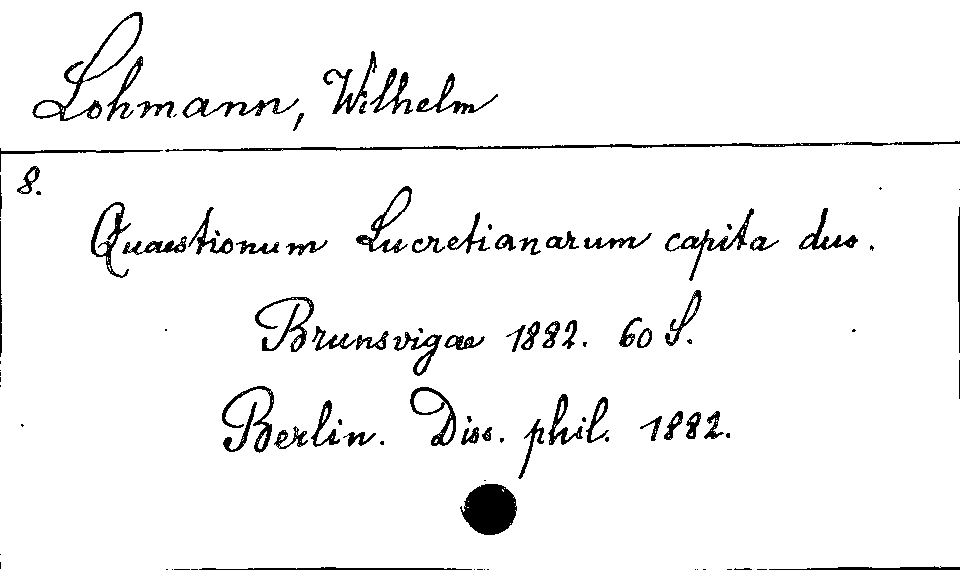 Lohmann, Wilhelm
8.
Quaestionum Lucretianarum capita duo.
Brunsvigae 1882. 60 S.
Berlin. Diss. phil. 1882.